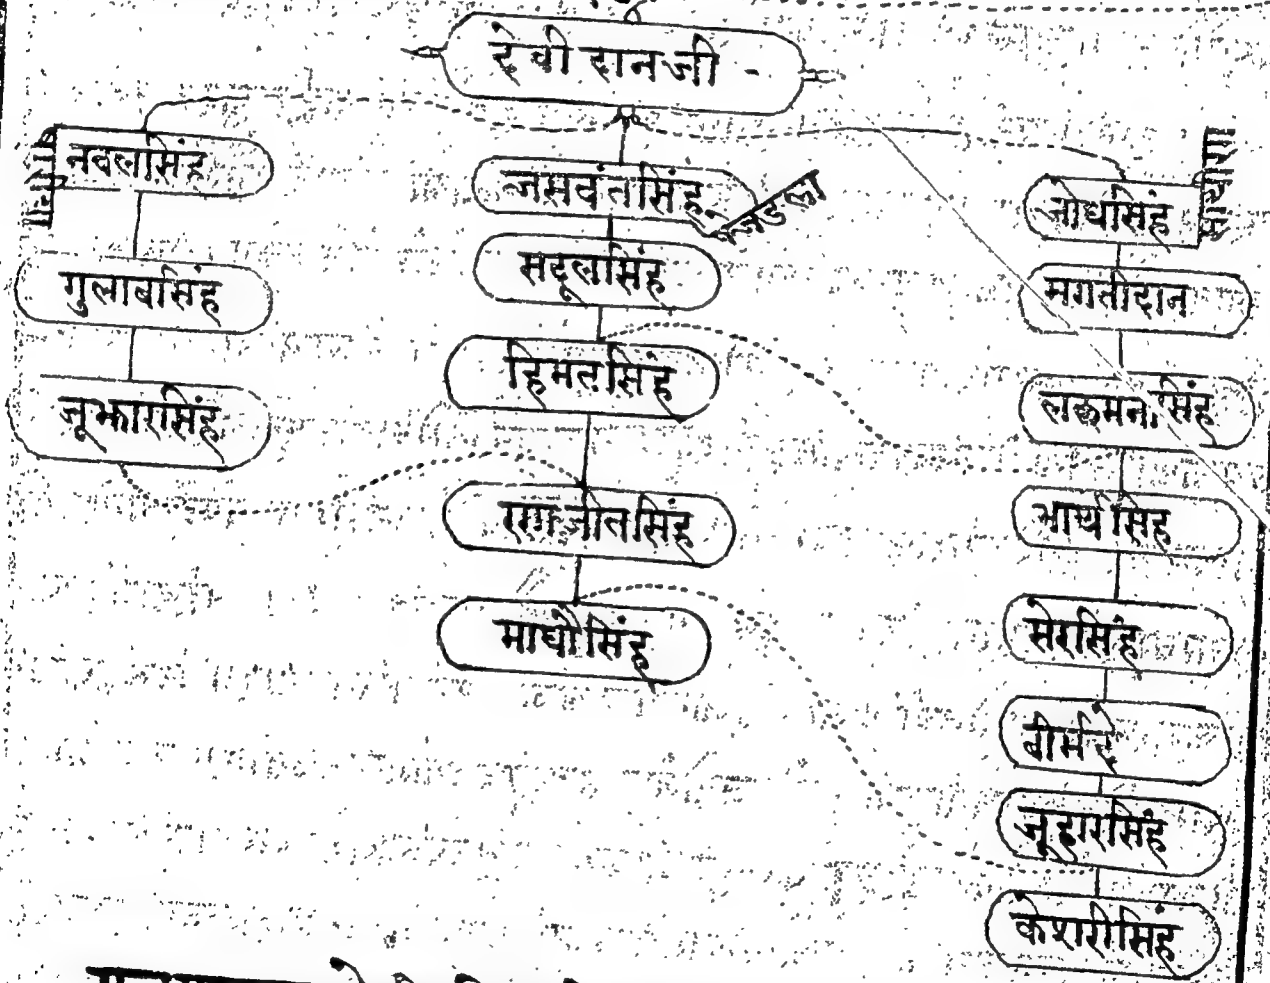 देवी दानजी -
नवलसिंह
गुलाबसिंह
जूझारसिंह
जसवंतसिंह
सदूलसिंह
हिमतसिंह
रणजीतसिंह
माधौसिंह
जोधसिंह
मगतीदान
लछमन सिंह
भार्थसिंह
सेरसिंह
वीर्मदे
जूहारसिंह
केशरीसिंह